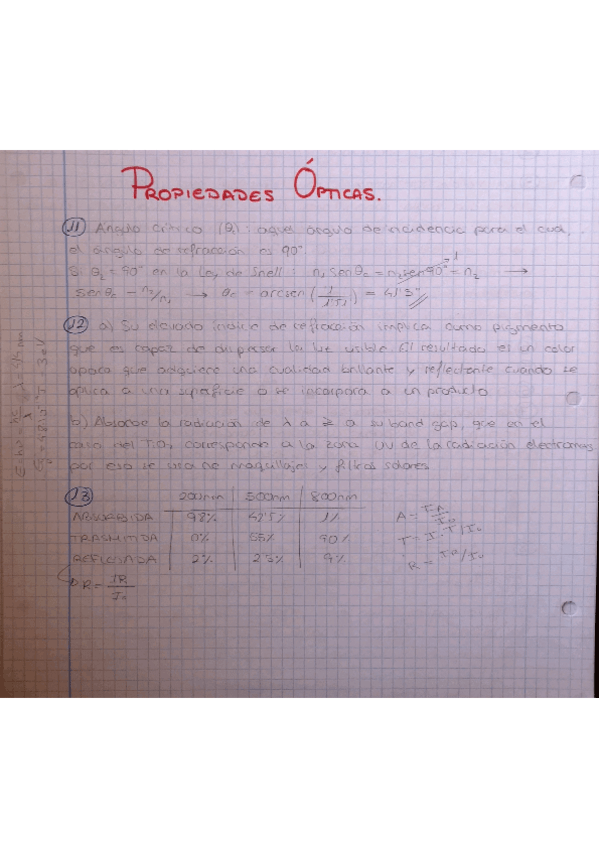 PROPIEDADES ÓPTICAS.
11) Ángulo crítico (θc): aquel ángulo de incidencia para el cual,
el ángulo de refracción es 90°
Si θ2 = 90° en la Ley de Snell: n1 senθc = n2 sen90° = n2 →
1
senθc = n2/n1 → θc = arcsen (1/1'51) = 41'3°
12) a) Su elevado índice de refracción implica como pigmento
que es capaz de dispersar la luz visible. El resultado es un color
opaco que adquiere una cualidad brillante y reflectante cuando se
aplica a una superficie o se incorpora a un producto
b) Absorbe la radiación de λ a su band gap, que en el
caso del TiO2 corresponde a la zona UV de la radiación
por eso se usa en maquillajes y filtros solares
13) 200nm | 500nm | 800nm
ABSORBIDA 98% 42'5% 1%
TRASMITIDA 0% 55% 90%
REFLEJADA 2% 2'5% 9%
R = IR/I0
A = IA/I0
T = IT/I0
R = IR/I0